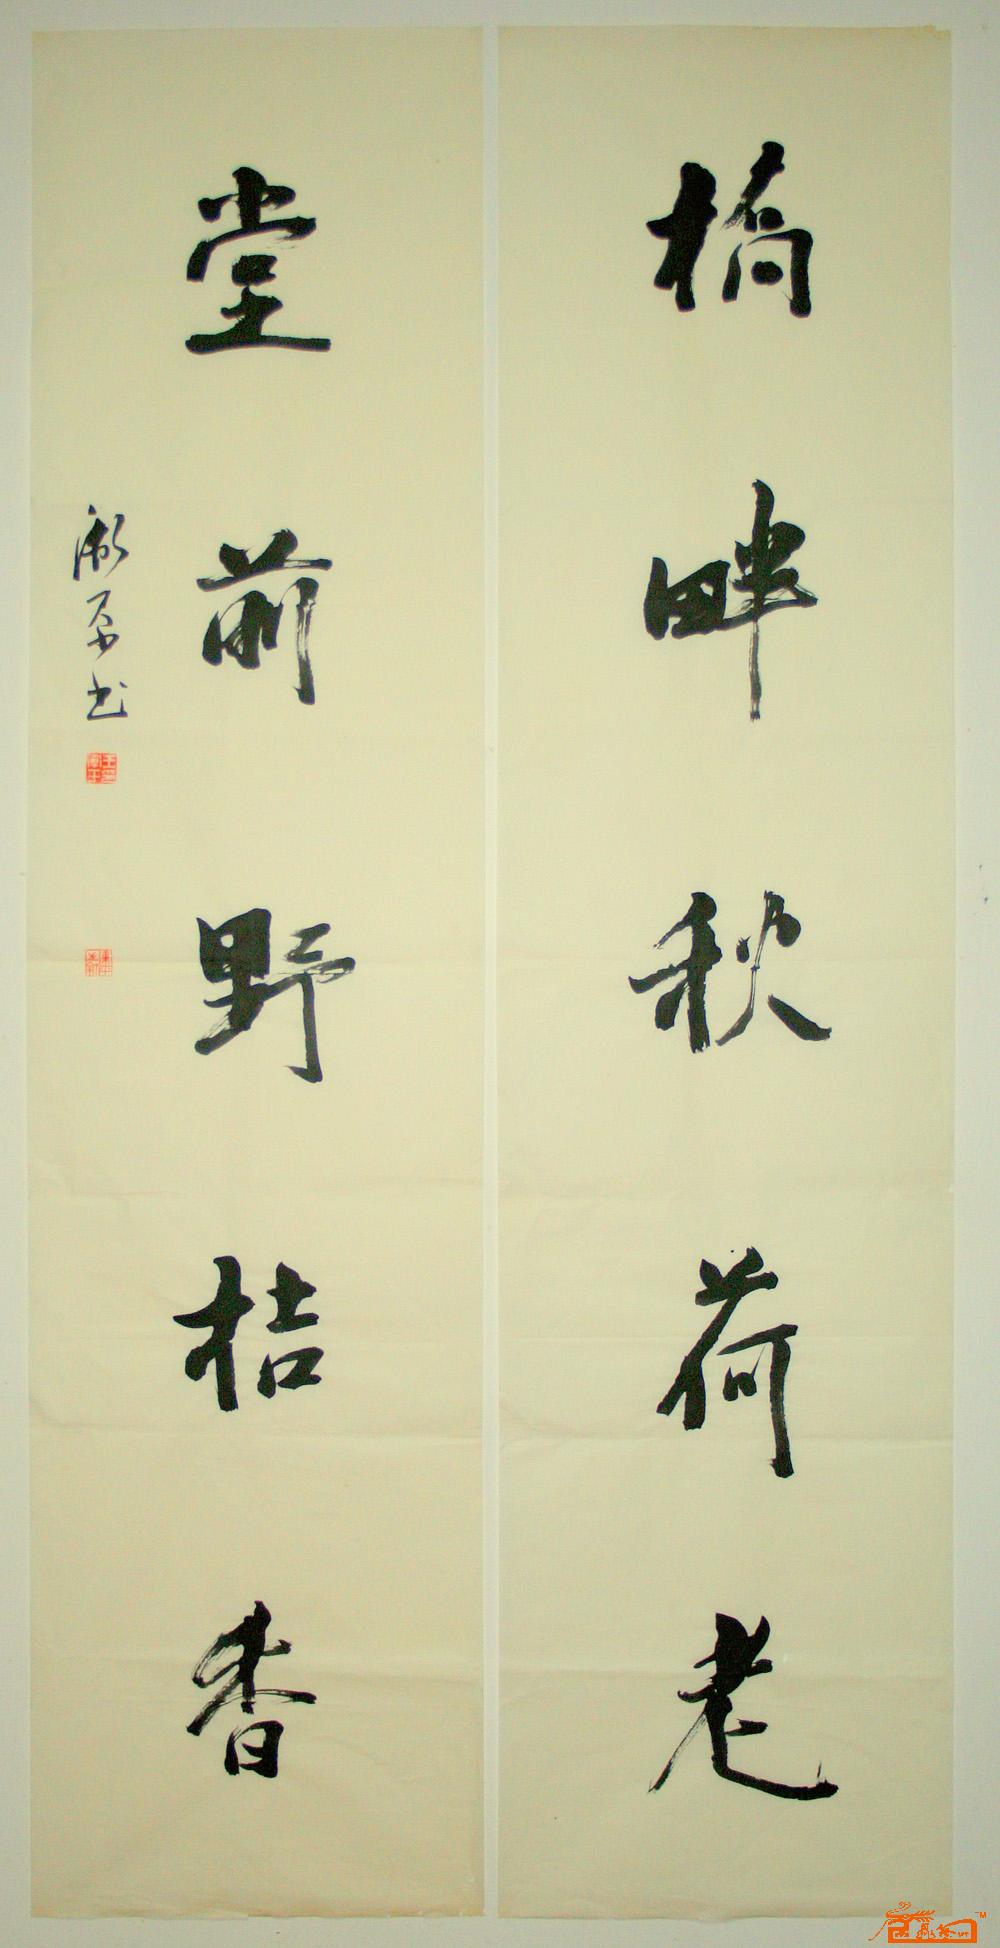 橋畔秋荷老
堂前野桔香